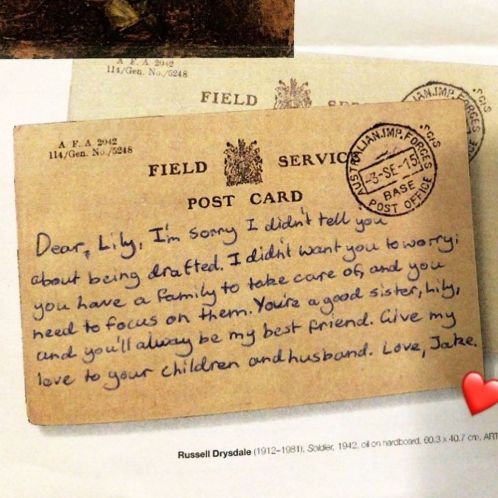 A F A 2042
114/Gen. No./5248
FIELD SER
AN.IMP.FORCES
A F A 2042
114/Gen. No./5248
FIELD SERVICE
POST CARD
AUSTRALIAN.IMP.FORCES
-3-SE-15
BASE
POST OFFICE
Dear, Lily, I'm sorry I didn't tell you
about being drafted. I didn't want you to worry;
you have a family to take care of, and you
need to focus on them. You're a good sister, Lily,
and you'll alway be my best friend. Give my
love to your children and husband. Love, Jake.
Russell Drysdale (1912–1981), Soldier, 1942, oil on hardboard, 60.3 x 40.7 cm, ART